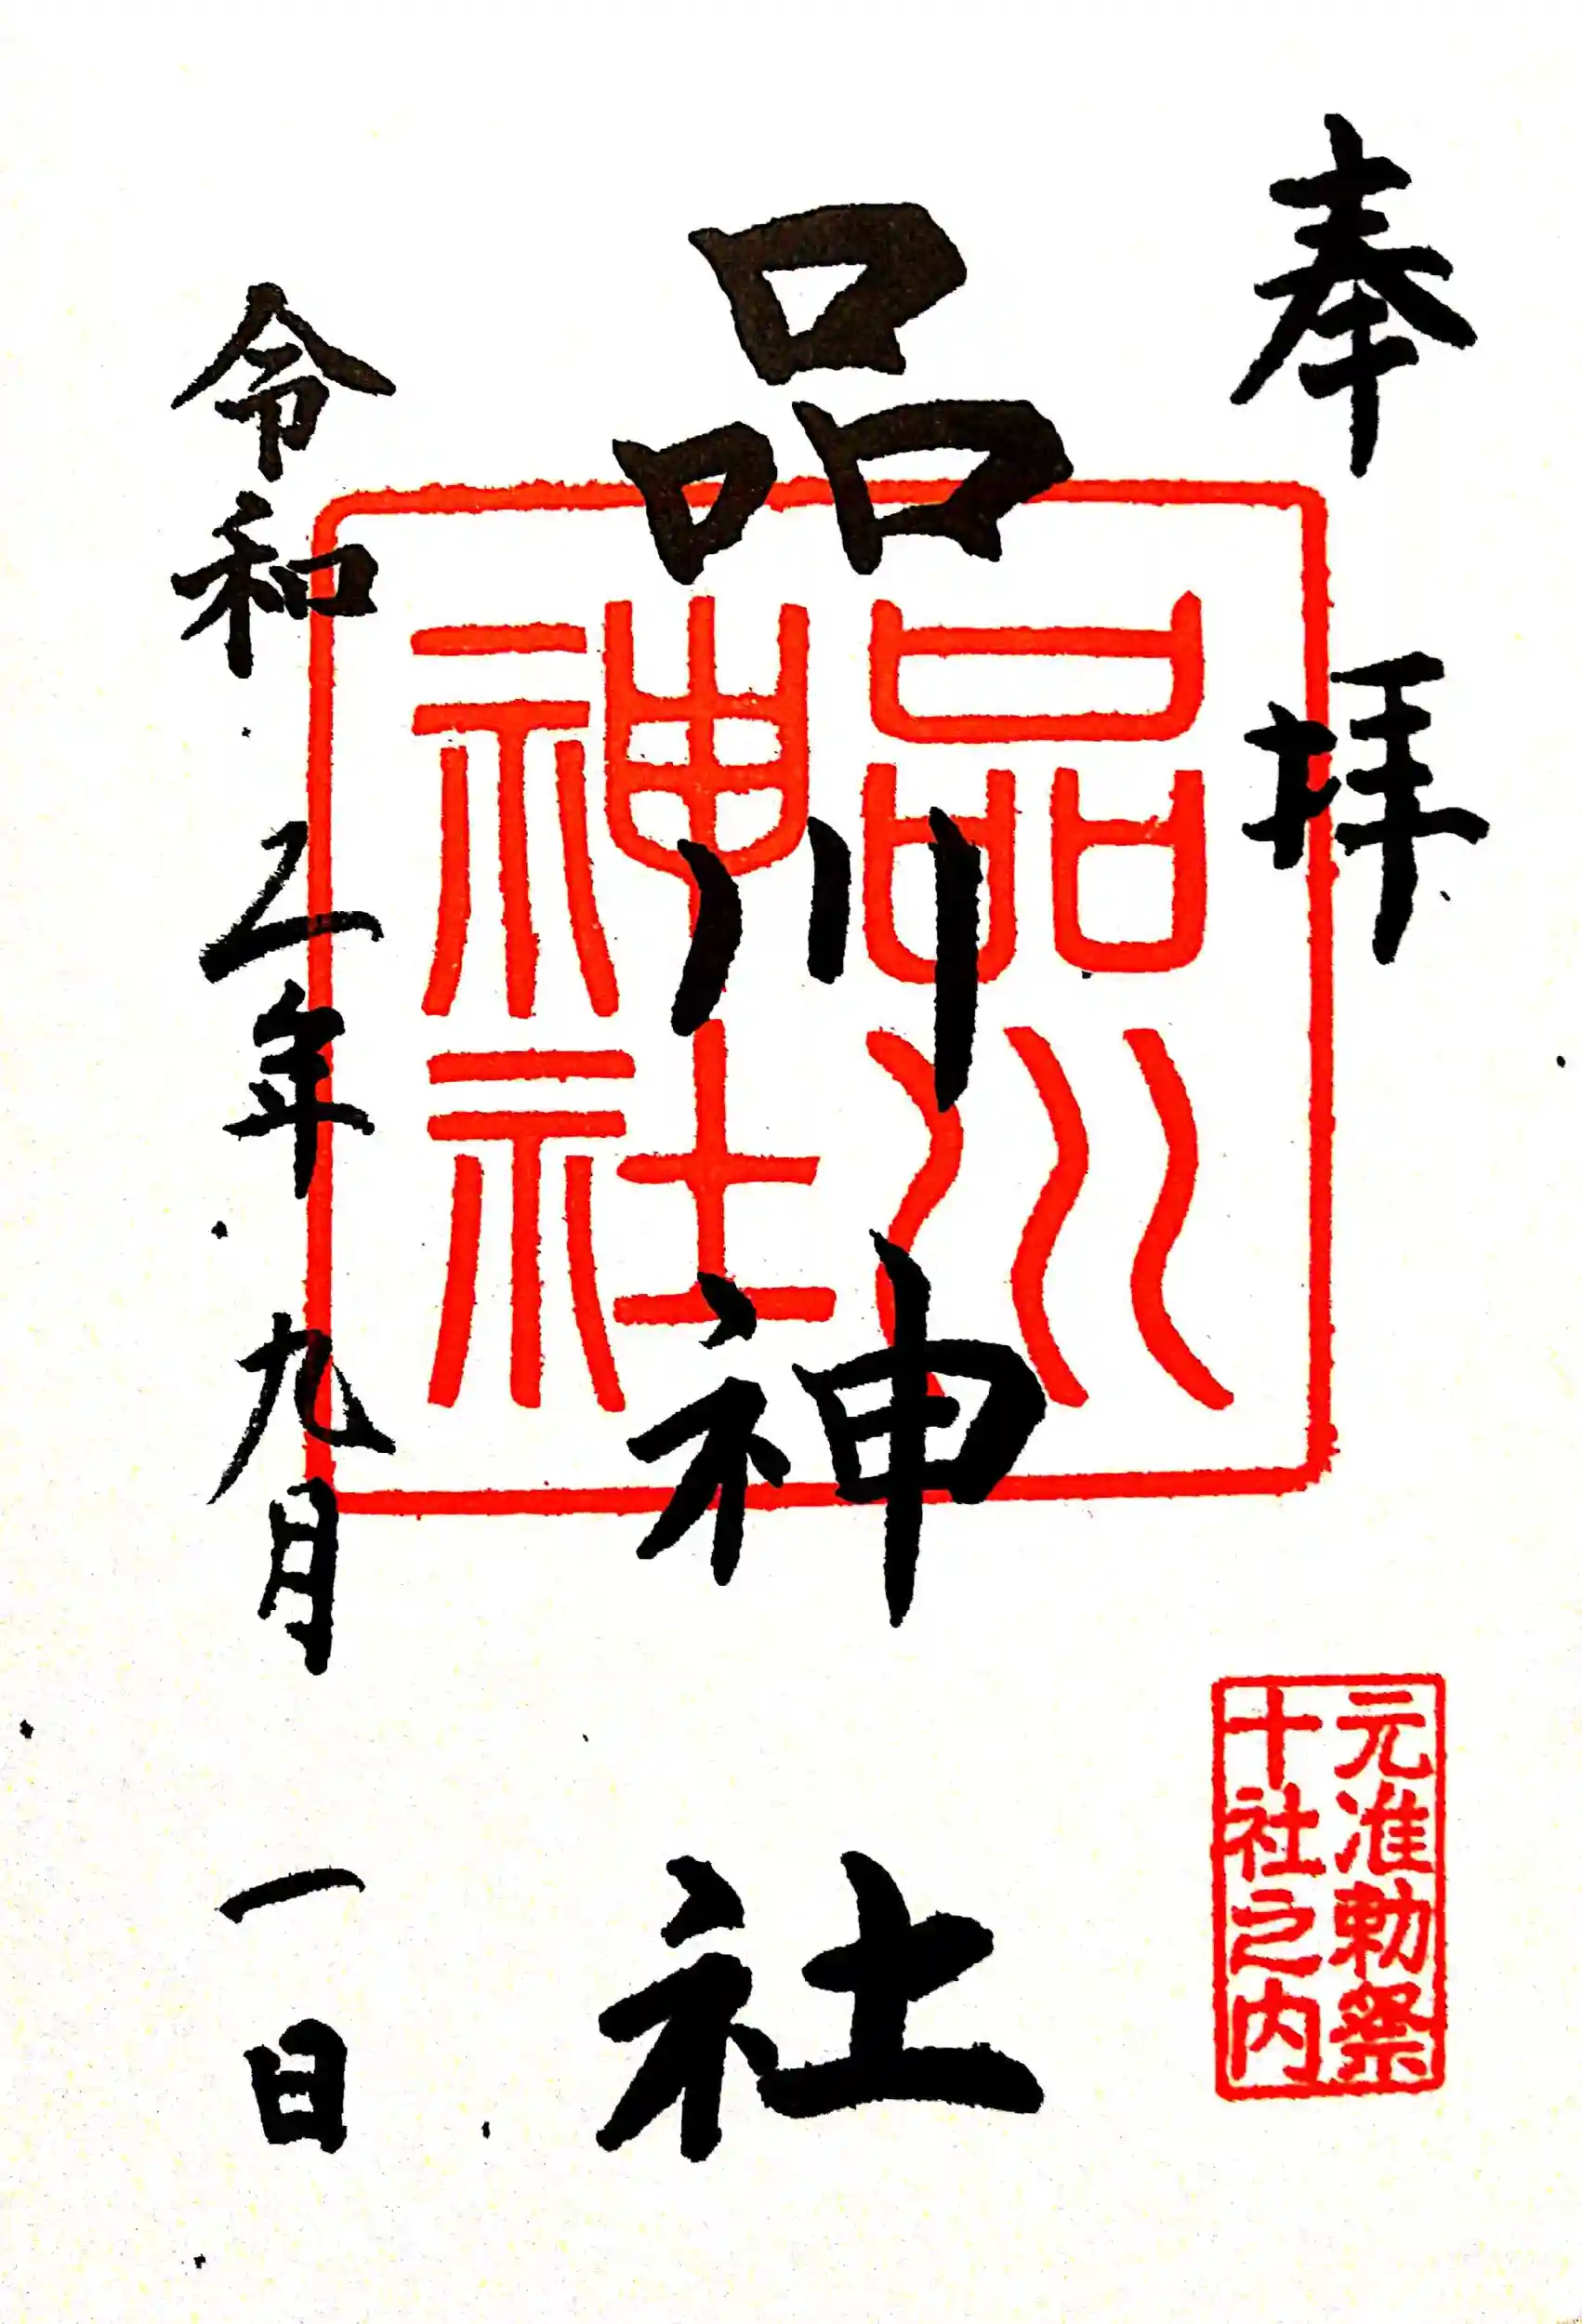 奉拝
元准勅祭
十社之内
品川神社
品川
神社
令和二年九月一日